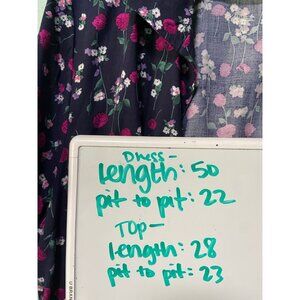 Dress-
Length: 50
pit to pit: 22
Top-
length: 28
pit to pit: 23